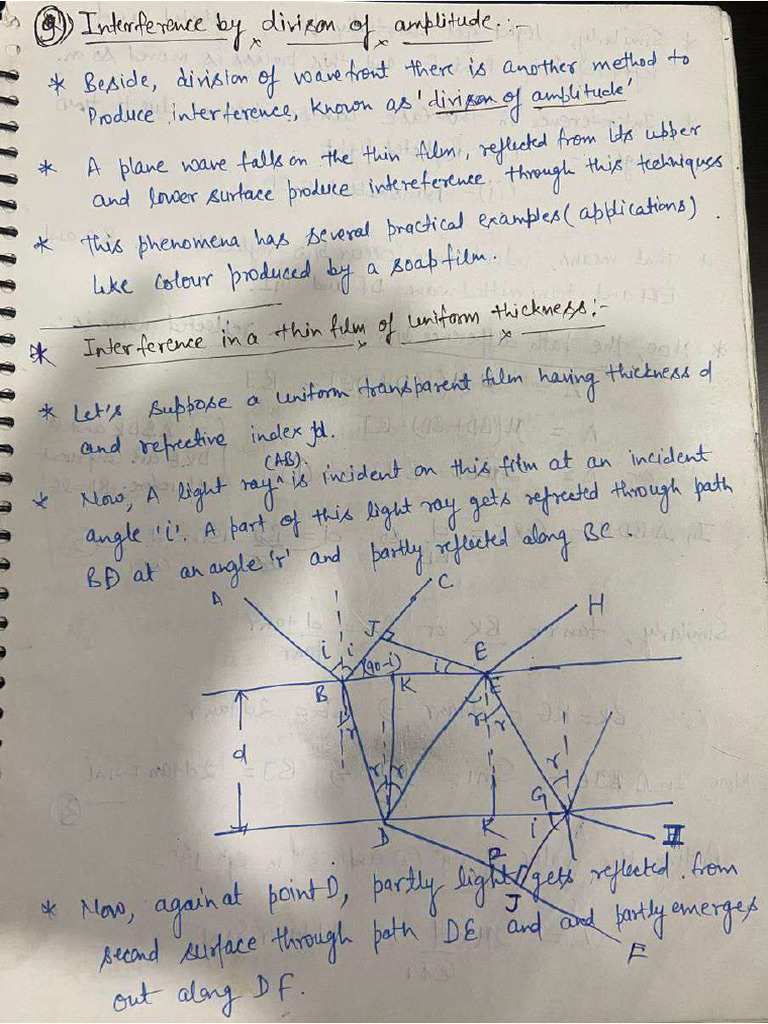 9) Interference by divison of amplitude :-
* Beside, division of wavefront there is another method to
Produce interference, known as 'divison of amplitude'
* A plane wave falls on the thin film, reflected from its upper
and lower surface produce intereference through this techniques.
* This phenomena has several practical examples (applications).
like colour produced by a soap film.
* Interference in a thin film of uniform thickness :-
* Let's suppose a uniform transparent film having thickness d
and refrective index μ.
(AB)
* Now, A light ray ^ is incident on this film at an incident
angle 'i'. A part of this light ray gets refrected through path
BD at an angle 'r' and partly reflected along BC.
A C H
J E
i i (90-i) i
B K E
r r r
d r r r
G
D K i
R
J
F
* Now, again at point D, partly light gets reflected from
second surface through path DE and and partly emerges
out along DF.